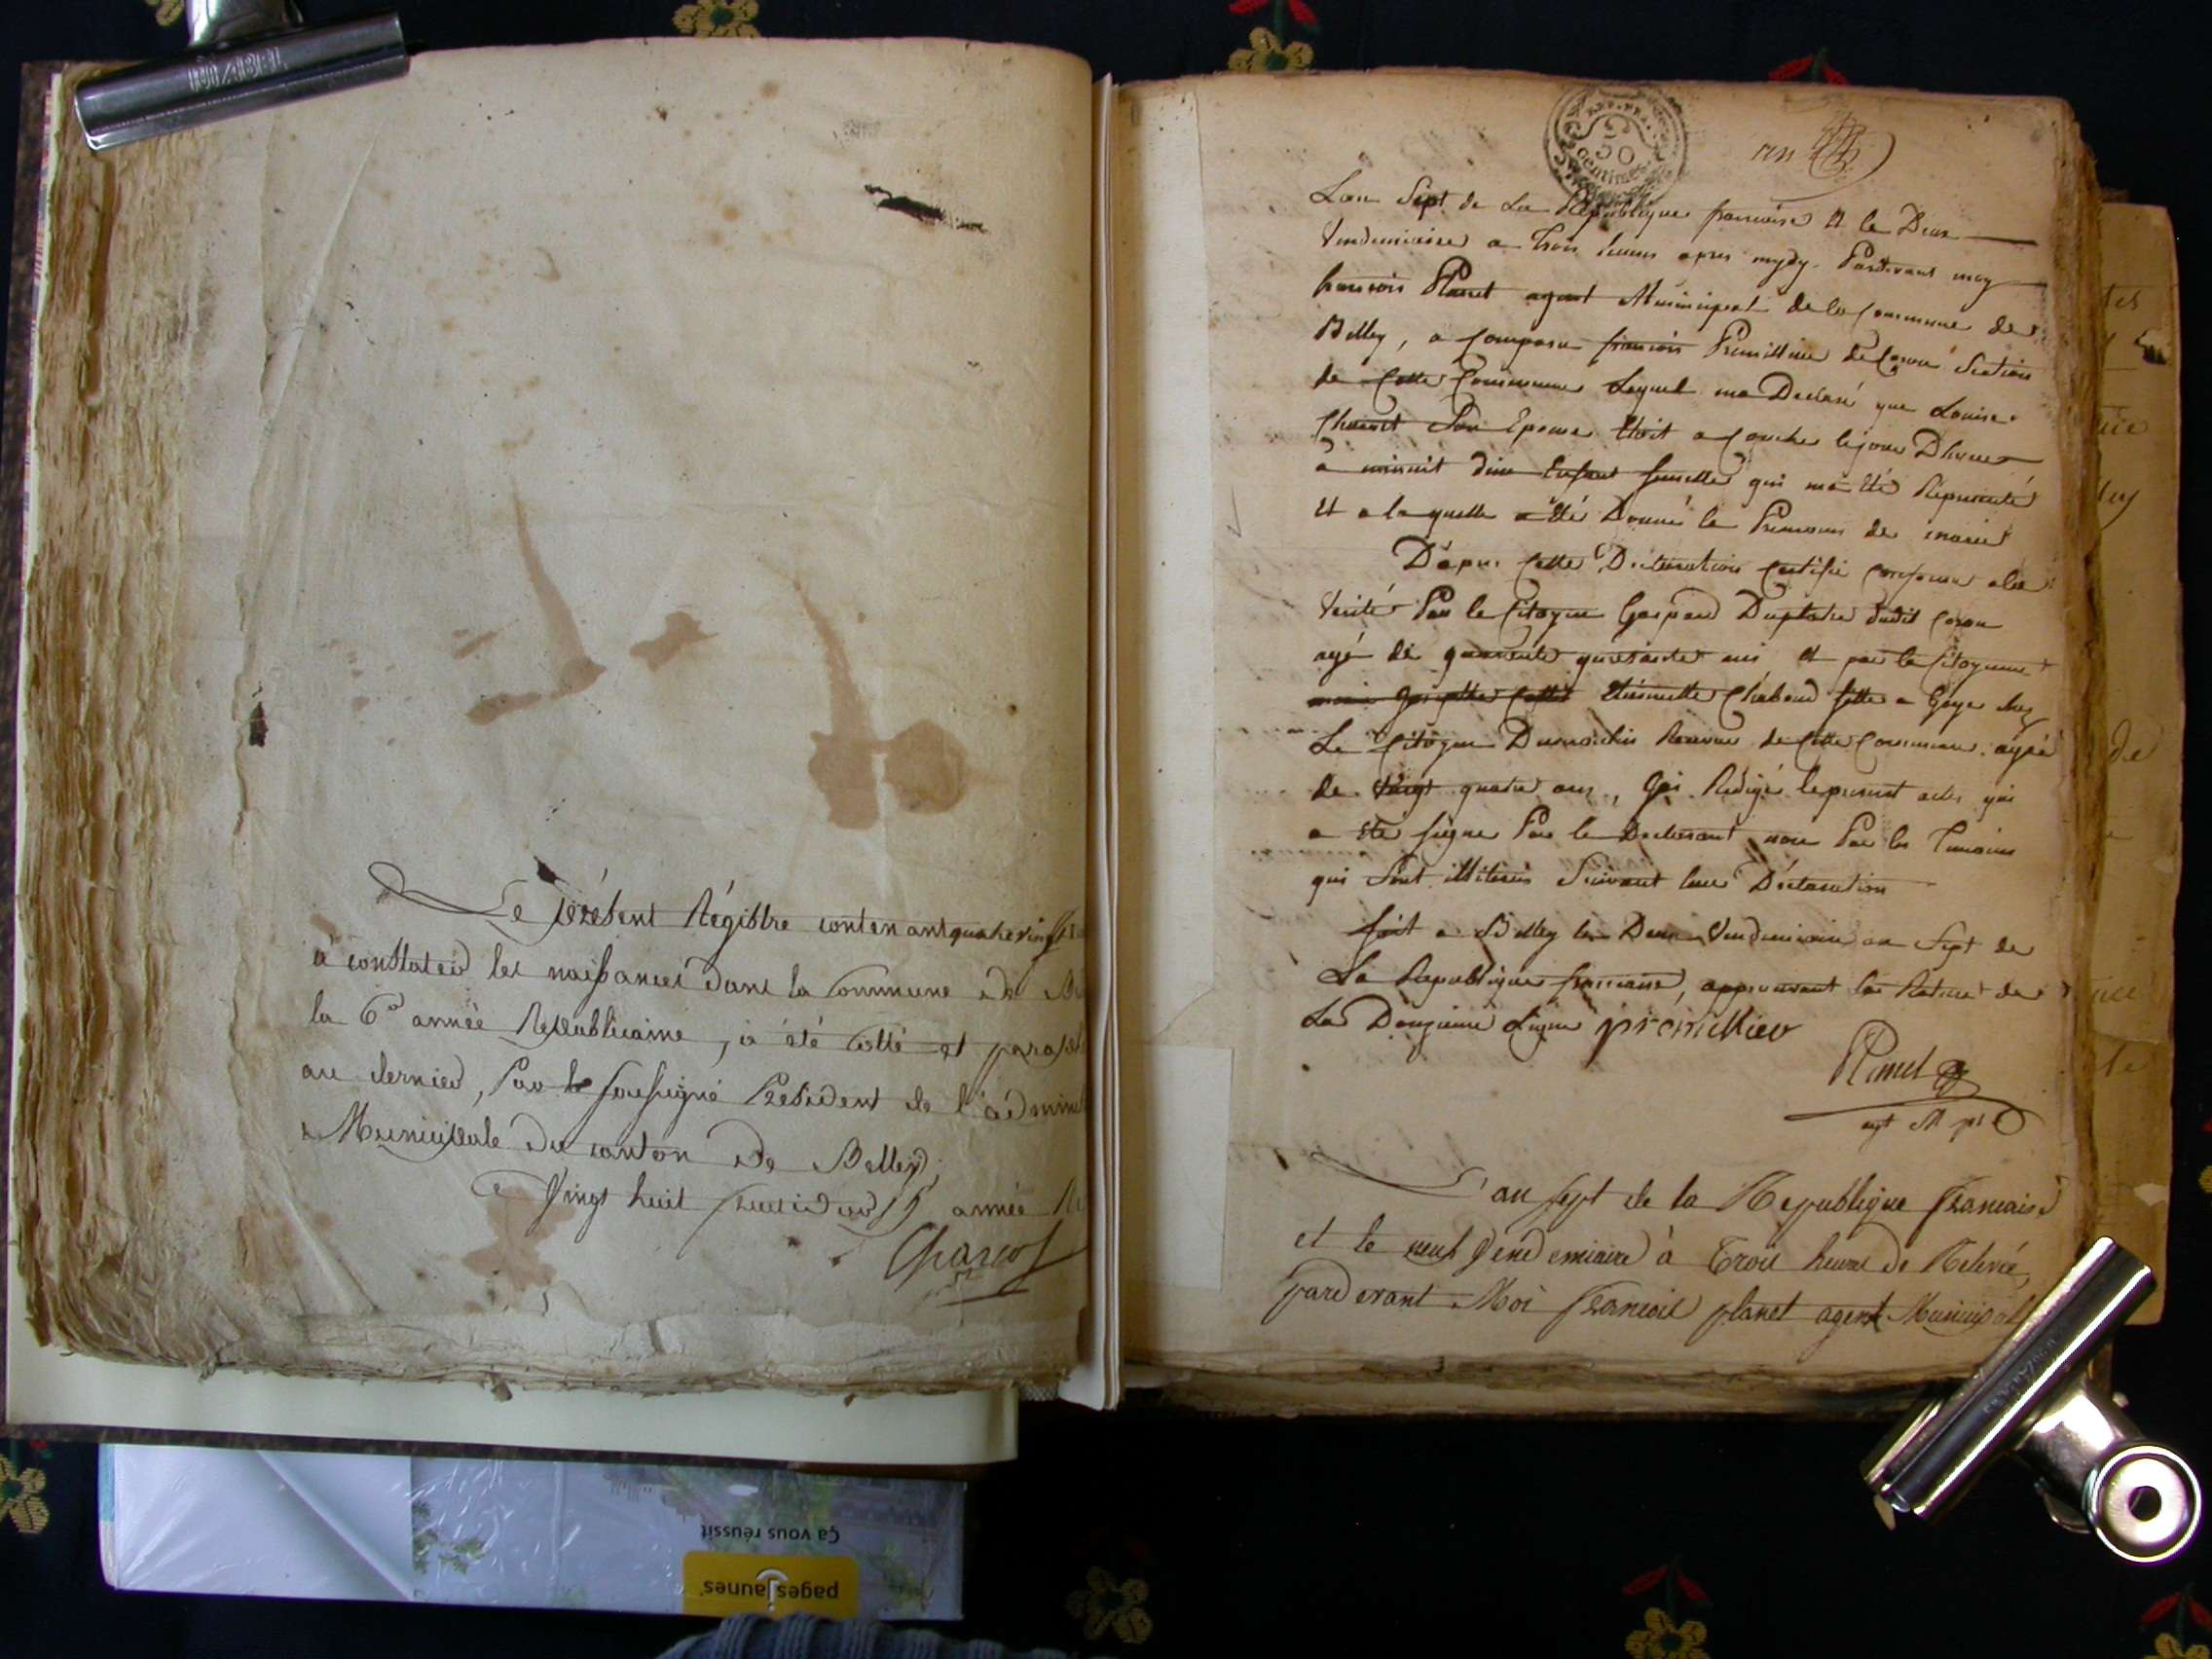 Le présent Régistre contenant quatre vingt
à constater les naissances dans la Commune de
la 6e année Républicaine, a été cotté et
au dernier, Par le soussigné Président de l'
Municipale du canton de Belley,
Vingt huit fructidor année
REP. FRA.
50
centimes
an
Lan Sept de La République francoise Et le Deux
Vendemiaire a Trois heures apres mydy. Pardevant moy
francois Planet agent Municipal de la Commune de
Belley, a Comparu francois Premillieu de Coron Section
de Cette Commune Lequel ma Declaré que Louise
Son Epouse Etoit acouche le jour Dhier
a minuit dun Enfant femelle qui ma Eté Representé
Et a laquelle a Eté Donné le Prenom de marie
D'apres Cette Declaration Certifié Conforme ala
Verité Par le Citoyen Gaspard dudit Coron
agé de quarante ans et par la Citoyenne
Chaboud fille a Gage chez
Le Citoyen Dumoulin de Cette Commune agée
de Vingt quatre ans, Jai Redigé le present acte qui
a Eté signe Par le Declarant non Par les Temoins
qui Sont illiterés Suivant leur Declaration
fait a Belley le Deux Vendemiaire an Sept de
La Republique francoise, approuvant la Rature de
La Douzieme Ligne premillieu
Planet
agt Mpl
L'an sept de la Republique française
et le neuf Vendemiaire à Trois heures de Relevée,
pardevant Moi françois planet agent Municipal
Ça vous réussit
pagesJaunes